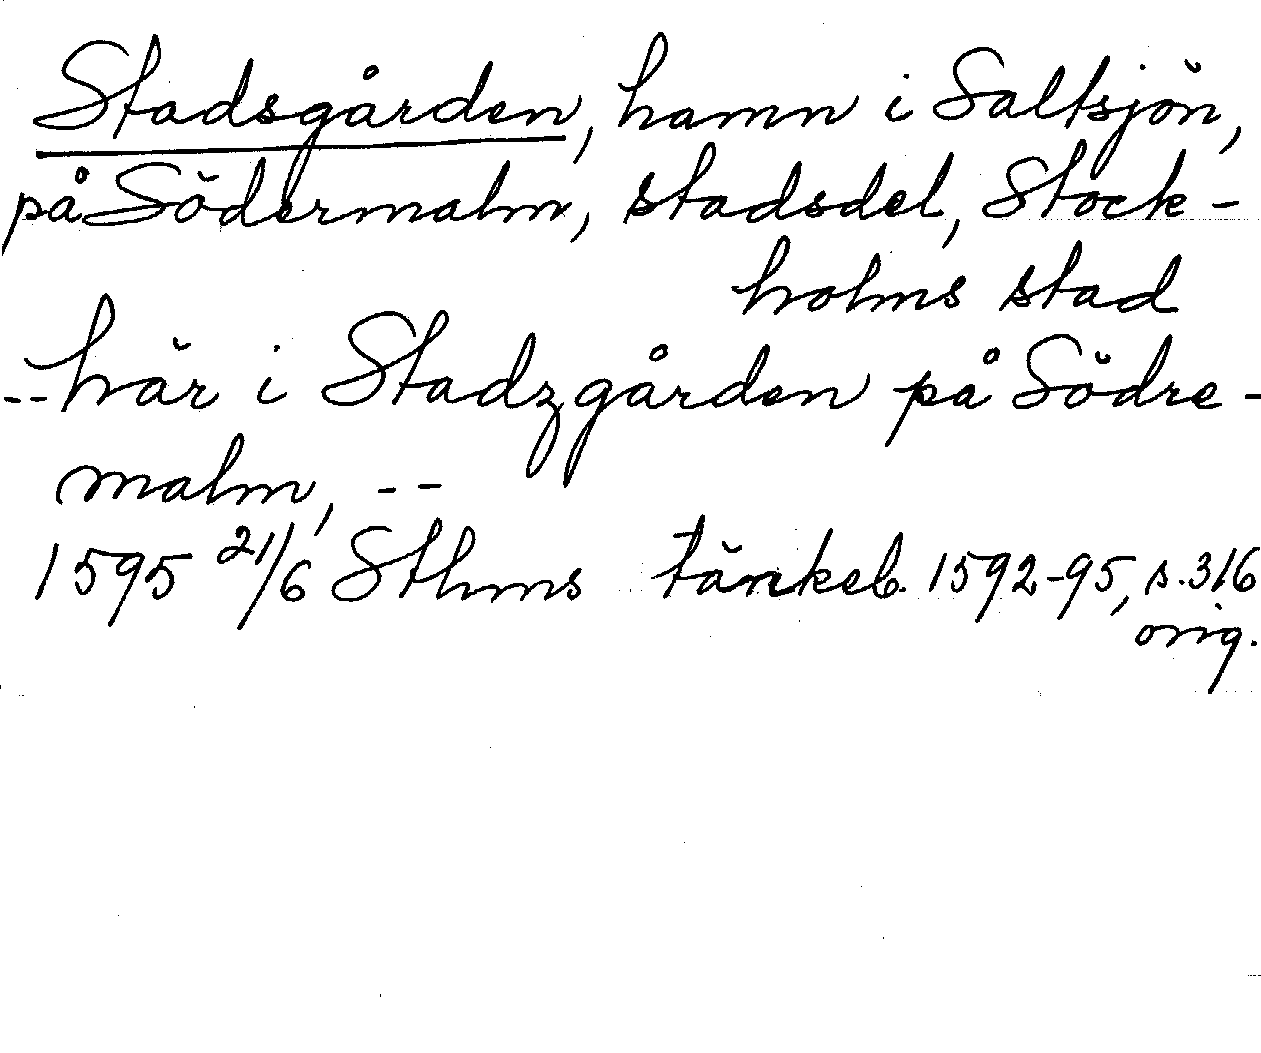 Stadsgården, hamn i Saltsjön,
på Södermalm, stadsdel, Stock-
holms stad
--här i Stadzgården på Södre-
malm, --
1595 21/6 Sthms tänkeb. 1592-95, s. 316
orig.